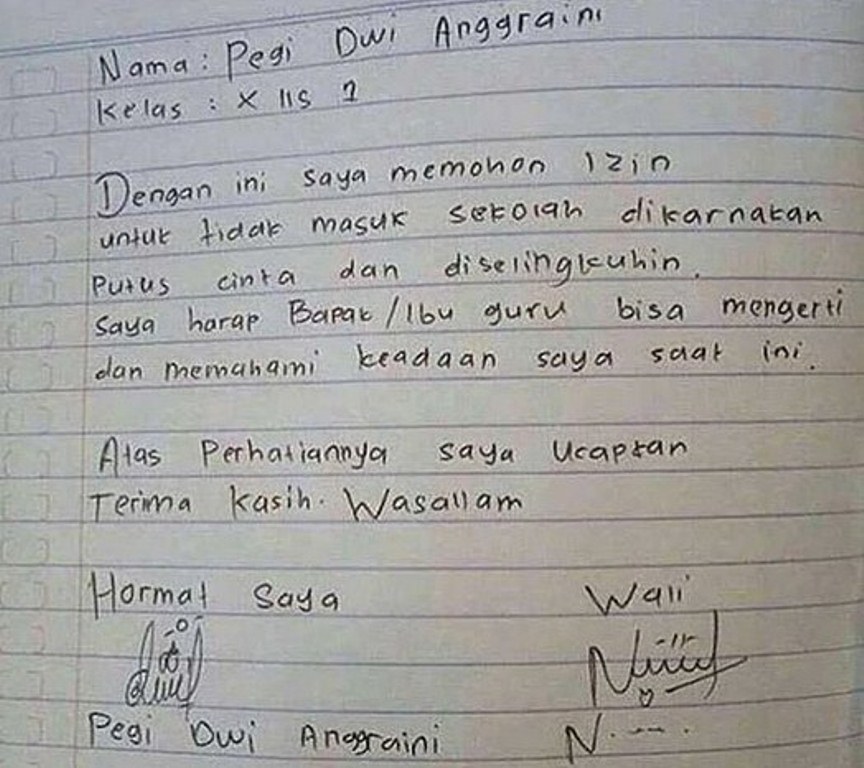 Nama : Pegi Dwi Anggraini
Kelas : X IIS 1
Dengan ini saya memohon Izin
untuk tidak masuk sekolah dikarnakan
Putus cinta dan diselingkuhin.
Saya harap Bapak/Ibu guru bisa mengerti
dan memahami keadaan saya saat ini.
Atas Perhatiannya saya Ucapkan
Terima kasih. Wasallam
Hormat Saya Wali
Pegi Dwi Anggraini N